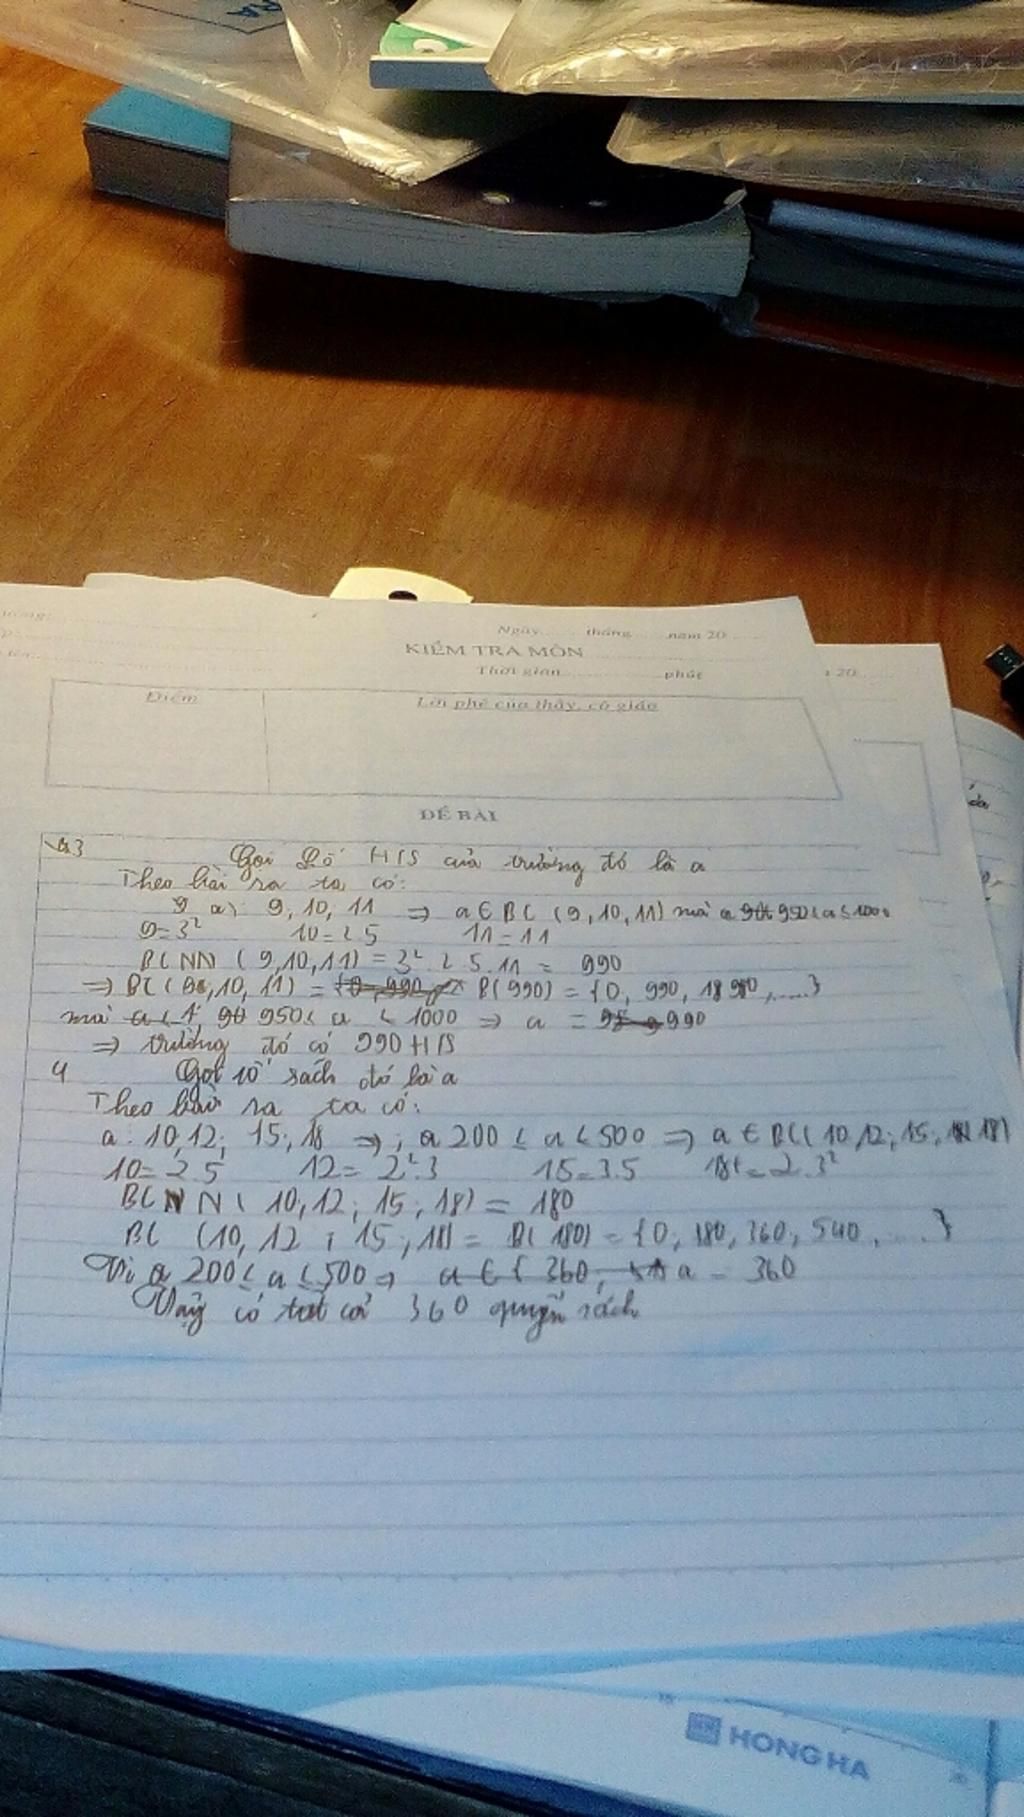 RA
Ngày ......... tháng ......... năm 20 .........
KIỂM TRA MÔN
Thời gian ......... phút
20
Điểm
Lời phê của thầy, cô giáo
ĐỀ BÀI
3 Gọi số HS của trường đó là a
Theo bài ra ta có:
9, 10, 11 => a ∈ BC (9, 10, 11) mà 950 < a < 1000
9 = 3² 10 = 2.5 11 = 11
BCNN (9,10,11) = 3².2.5.11 = 990
=> BC(9,10,11) = B(990) = {0, 990, 1980, ....}
mà 950 < a < 1000 => a = 990
=> trường đó có 990 HS
4 Gọi số sách đó là a
Theo bài ra ta có:
a : 10, 12; 15; 18 => 200 ≤ a ≤ 500 => a ∈ BC(10,12; 15, 18)
10 = 2.5 12 = 2².3 15 = 3.5 18 = 2.3²
BCNN (10; 12; 15; 18) = 180
BC (10, 12; 15; 18) = B(180) = {0, 180, 360, 540, ....}
Vì 200 ≤ a ≤ 500 => a = 360
Vậy có tất cả 360 quyển sách
HONG HA